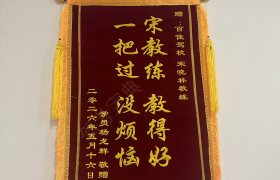 赠：百佳驾校 宋晓林教练
宋教练 教得好
一把过 没烦恼
学员杨龙祥 敬赠
二零二六年五月十六日